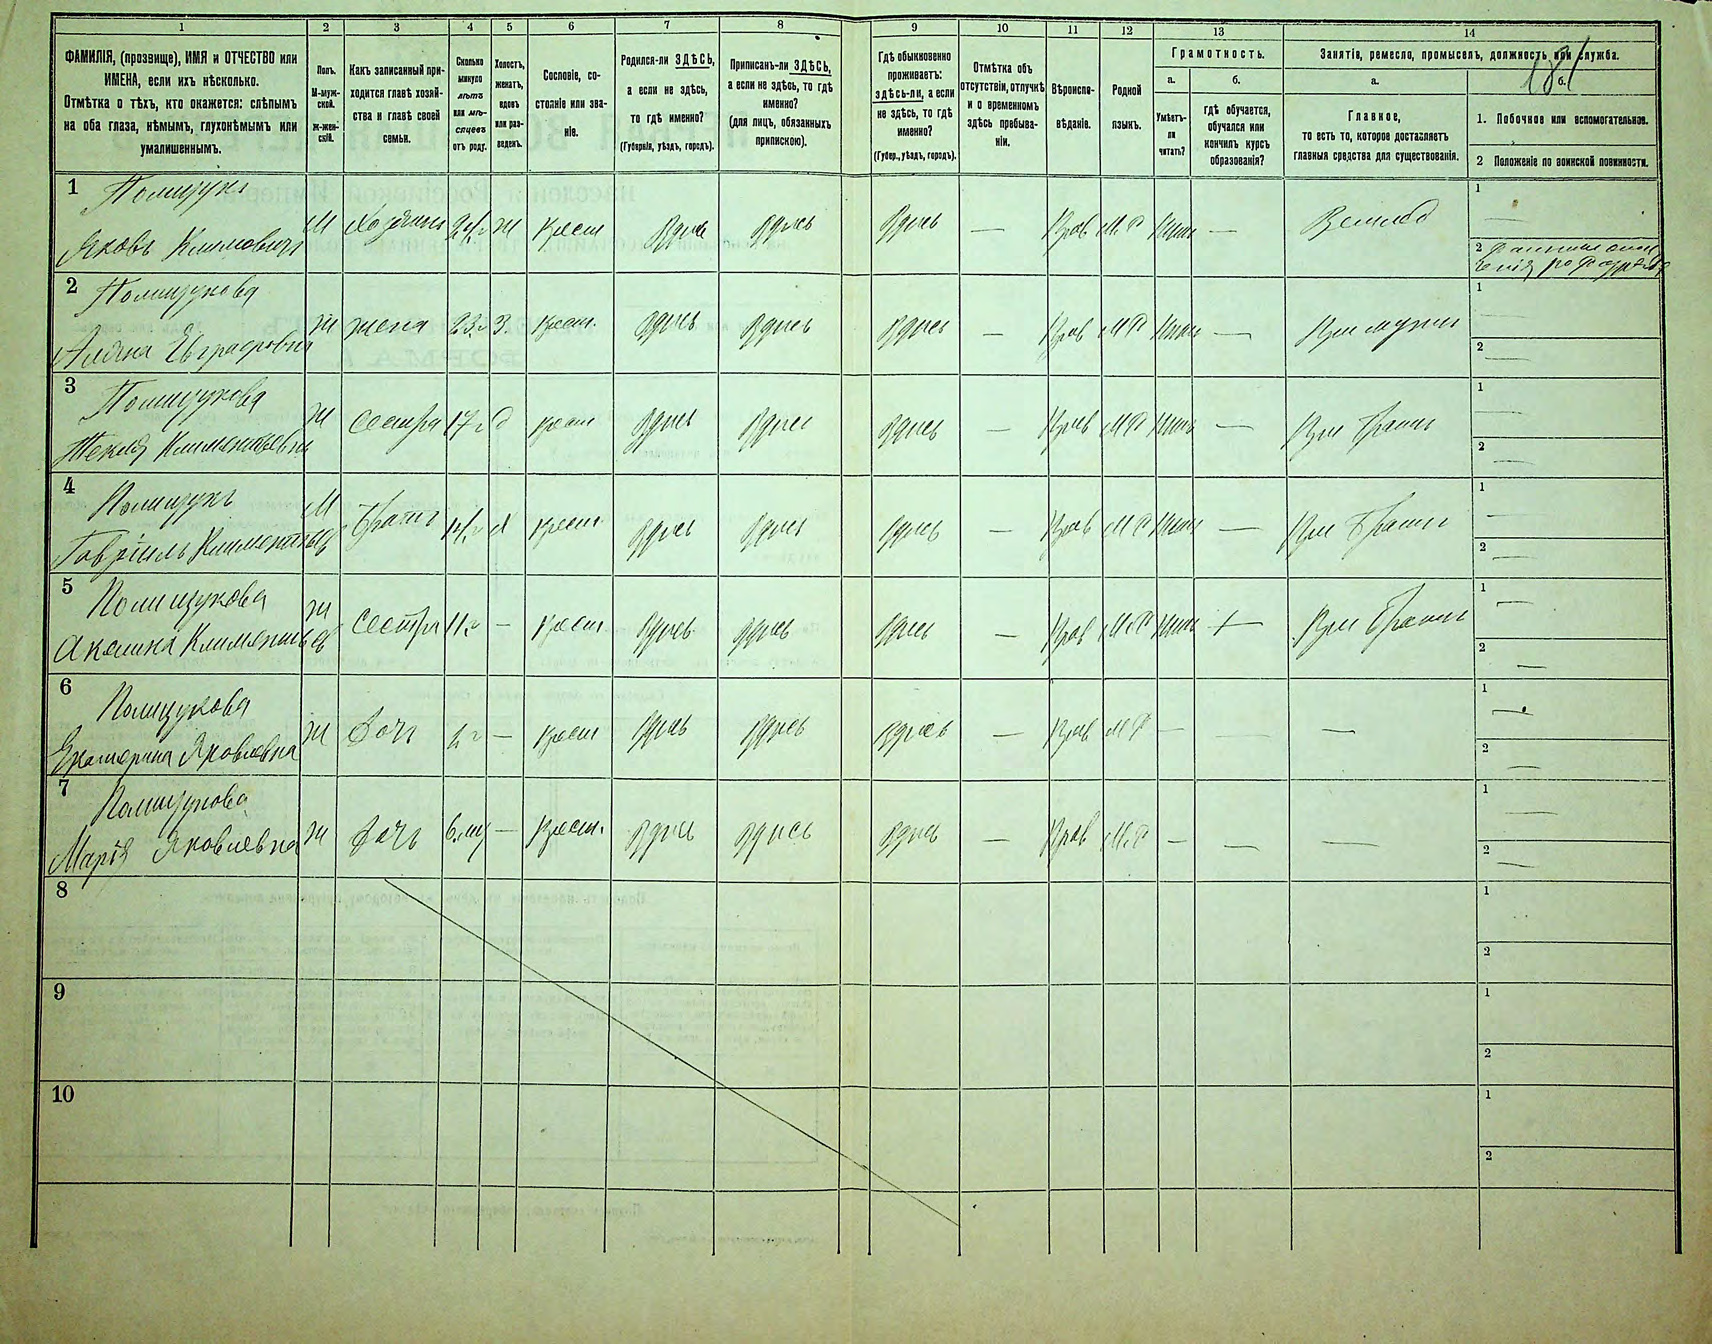 1 2 3 4 5 6 7 8 9 10 11 12 13 14
ФАМИЛІЯ, (прозвище), ИМЯ и ОТЧЕСТВО или
ИМЕНА, если ихъ нѣсколько.
Отмѣтка о тѣхъ, кто окажется: слѣпымъ
на оба глаза, нѣмымъ, глухонѣмымъ или
умалишеннымъ.
Полъ.
М-муж-
ской.
Ж-жен-
скій.
Какъ записанный при-
ходится главѣ хозяй-
ства и главѣ своей
семьи.
Сколько
минуло
лѣтъ
или мѣ-
сяцевъ
отъ роду.
Холостъ,
женатъ,
вдовъ
или раз-
веденъ.
Сословіе, со-
стояніе или зва-
ніе.
Родился-ли ЗДѢСЬ,
а если не здѣсь,
то гдѣ именно?
(Губернія, уѣздъ, городъ).
Приписанъ-ли ЗДѢСЬ,
а если не здѣсь, то гдѣ
именно?
(для лицъ, обязанныхъ
припискою).
Гдѣ обыкновенно
проживаетъ:
здѣсь-ли, а если
не здѣсь, то гдѣ
именно?
(Губер., уѣздъ, городъ).
Отмѣтка объ
отсутствіи, отлучкѣ
и о временномъ
здѣсь пребыва-
ніи.
Вѣроиспо-
вѣданіе.
Родной
языкъ.
Грамотность.
а. б.
Умѣетъ-
ли
читать?
гдѣ обучается,
обучался или
кончилъ курсъ
образованія?
Занятія, ремесло, промыселъ, должность или служба.
а. б.
Главное,
то есть то, которое доставляетъ
главныя средства для существованія.
1. Побочное или вспомогательное.
2 Положеніе по воинской повинности.
1 Полищукъ
Яковъ Климовичъ М Хозяинъ ж Крест Здесь Здесь Здесь — Прав М Р — 1 —
2
2 Полищукова
Ж жена 23 г З. Крест. Здесь Здесь Здесь — Прав М Р — При мужи 1 —
2 —
3 Полищукова
Ж Сестра 17 г д Крест Здесь Здесь Здесь — Прав М Р — При Брати 1 —
2 —
4 Полищукъ
Гавріилъ М Братъ Крест Здесь Здесь Здесь — Прав М Р — При Брати 1 —
2 —
5 Полищукова
Акелина Ж Сестра 11 г — Крест Здесь Здесь Здесь — Прав М Р При Брати 1 —
2 —
6 Полищукова
Екатерина Яковлевна Ж Дочь — Крест Здесь Здесь Здесь — Прав М Р — — — 1 —
2 —
7 Полищукова
Марія Яковлевна Ж Дочь — Крест. Здесь Здесь Здесь — Прав М Р — — — 1 —
2 —
8 1
2
9 1
2
10 1
2